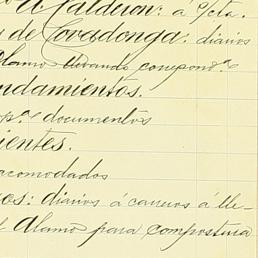 Calderon: á Icta.
y de Covadonga: diarios
Alamo llevando correspond.ª
ndamientos.
op.s documentos
ientes.
acomodados
os: diarios á carros á lle-
l Alamo para compostura